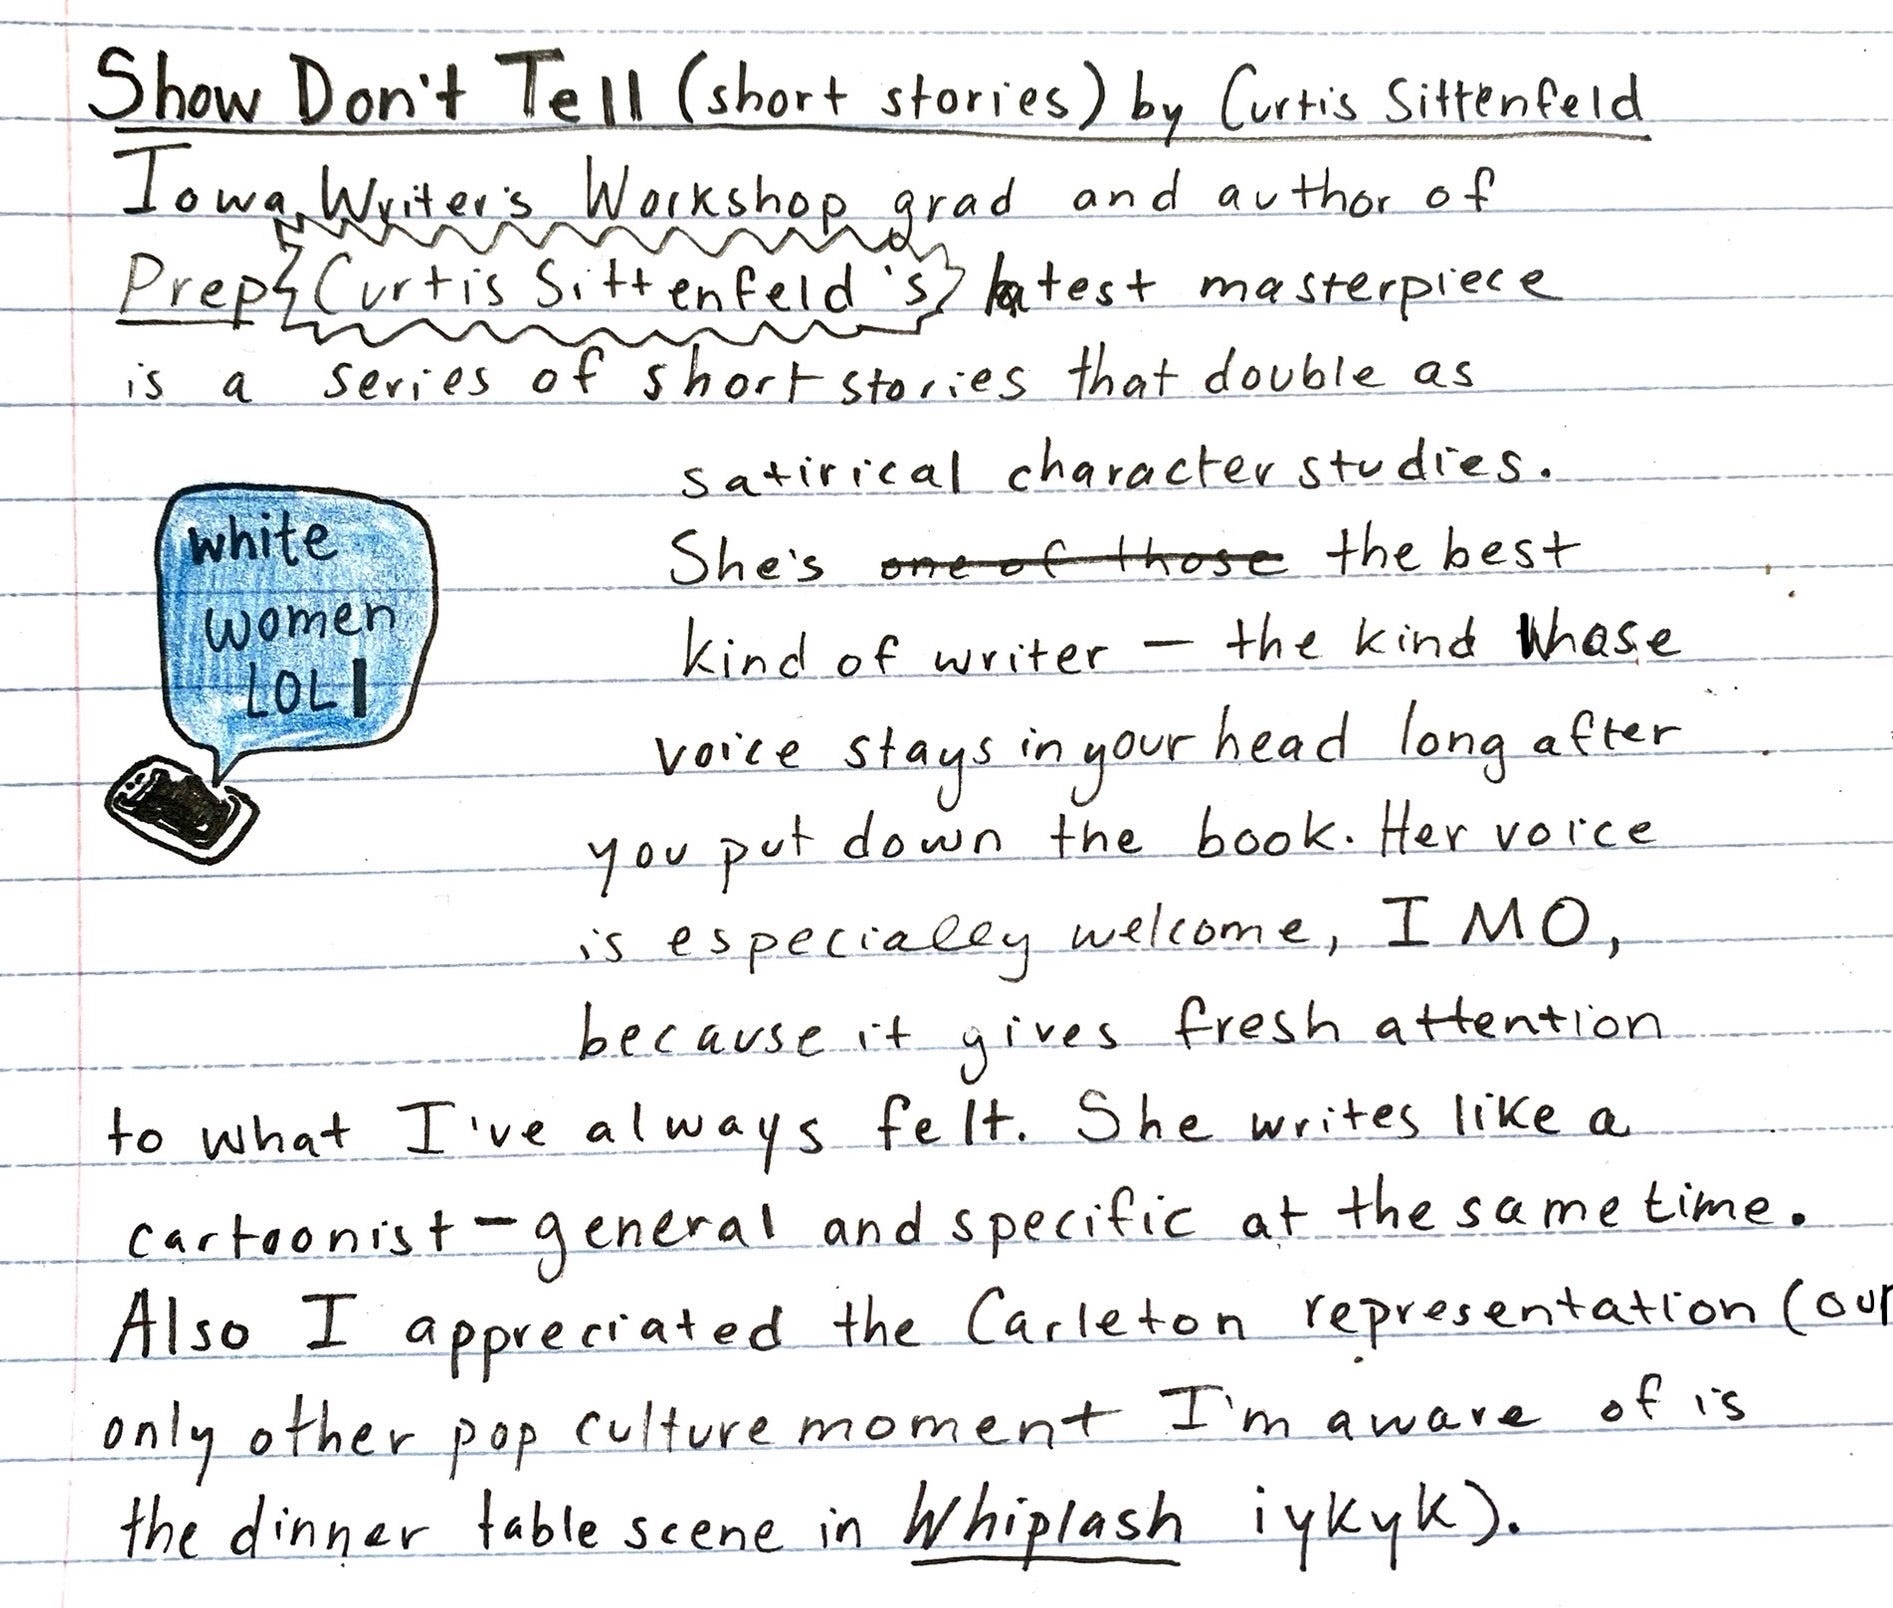 Show Don't Tell (short stories) by Curtis Sittenfeld
Iowa Writer's Workshop grad and author of
Prep Curtis Sittenfeld's latest masterpiece
is a series of short stories that double as
satirical character studies.
She's one of those the best
kind of writer — the kind whose
voice stays in your head long after
you put down the book. Her voice
is especially welcome, IMO,
because it gives fresh attention
to what I've always felt. She writes like a
cartoonist — general and specific at the same time.
Also I appreciated the Carleton representation (our
only other pop culture moment I'm aware of is
the dinner table scene in Whiplash iykyk).
white
women
LOL